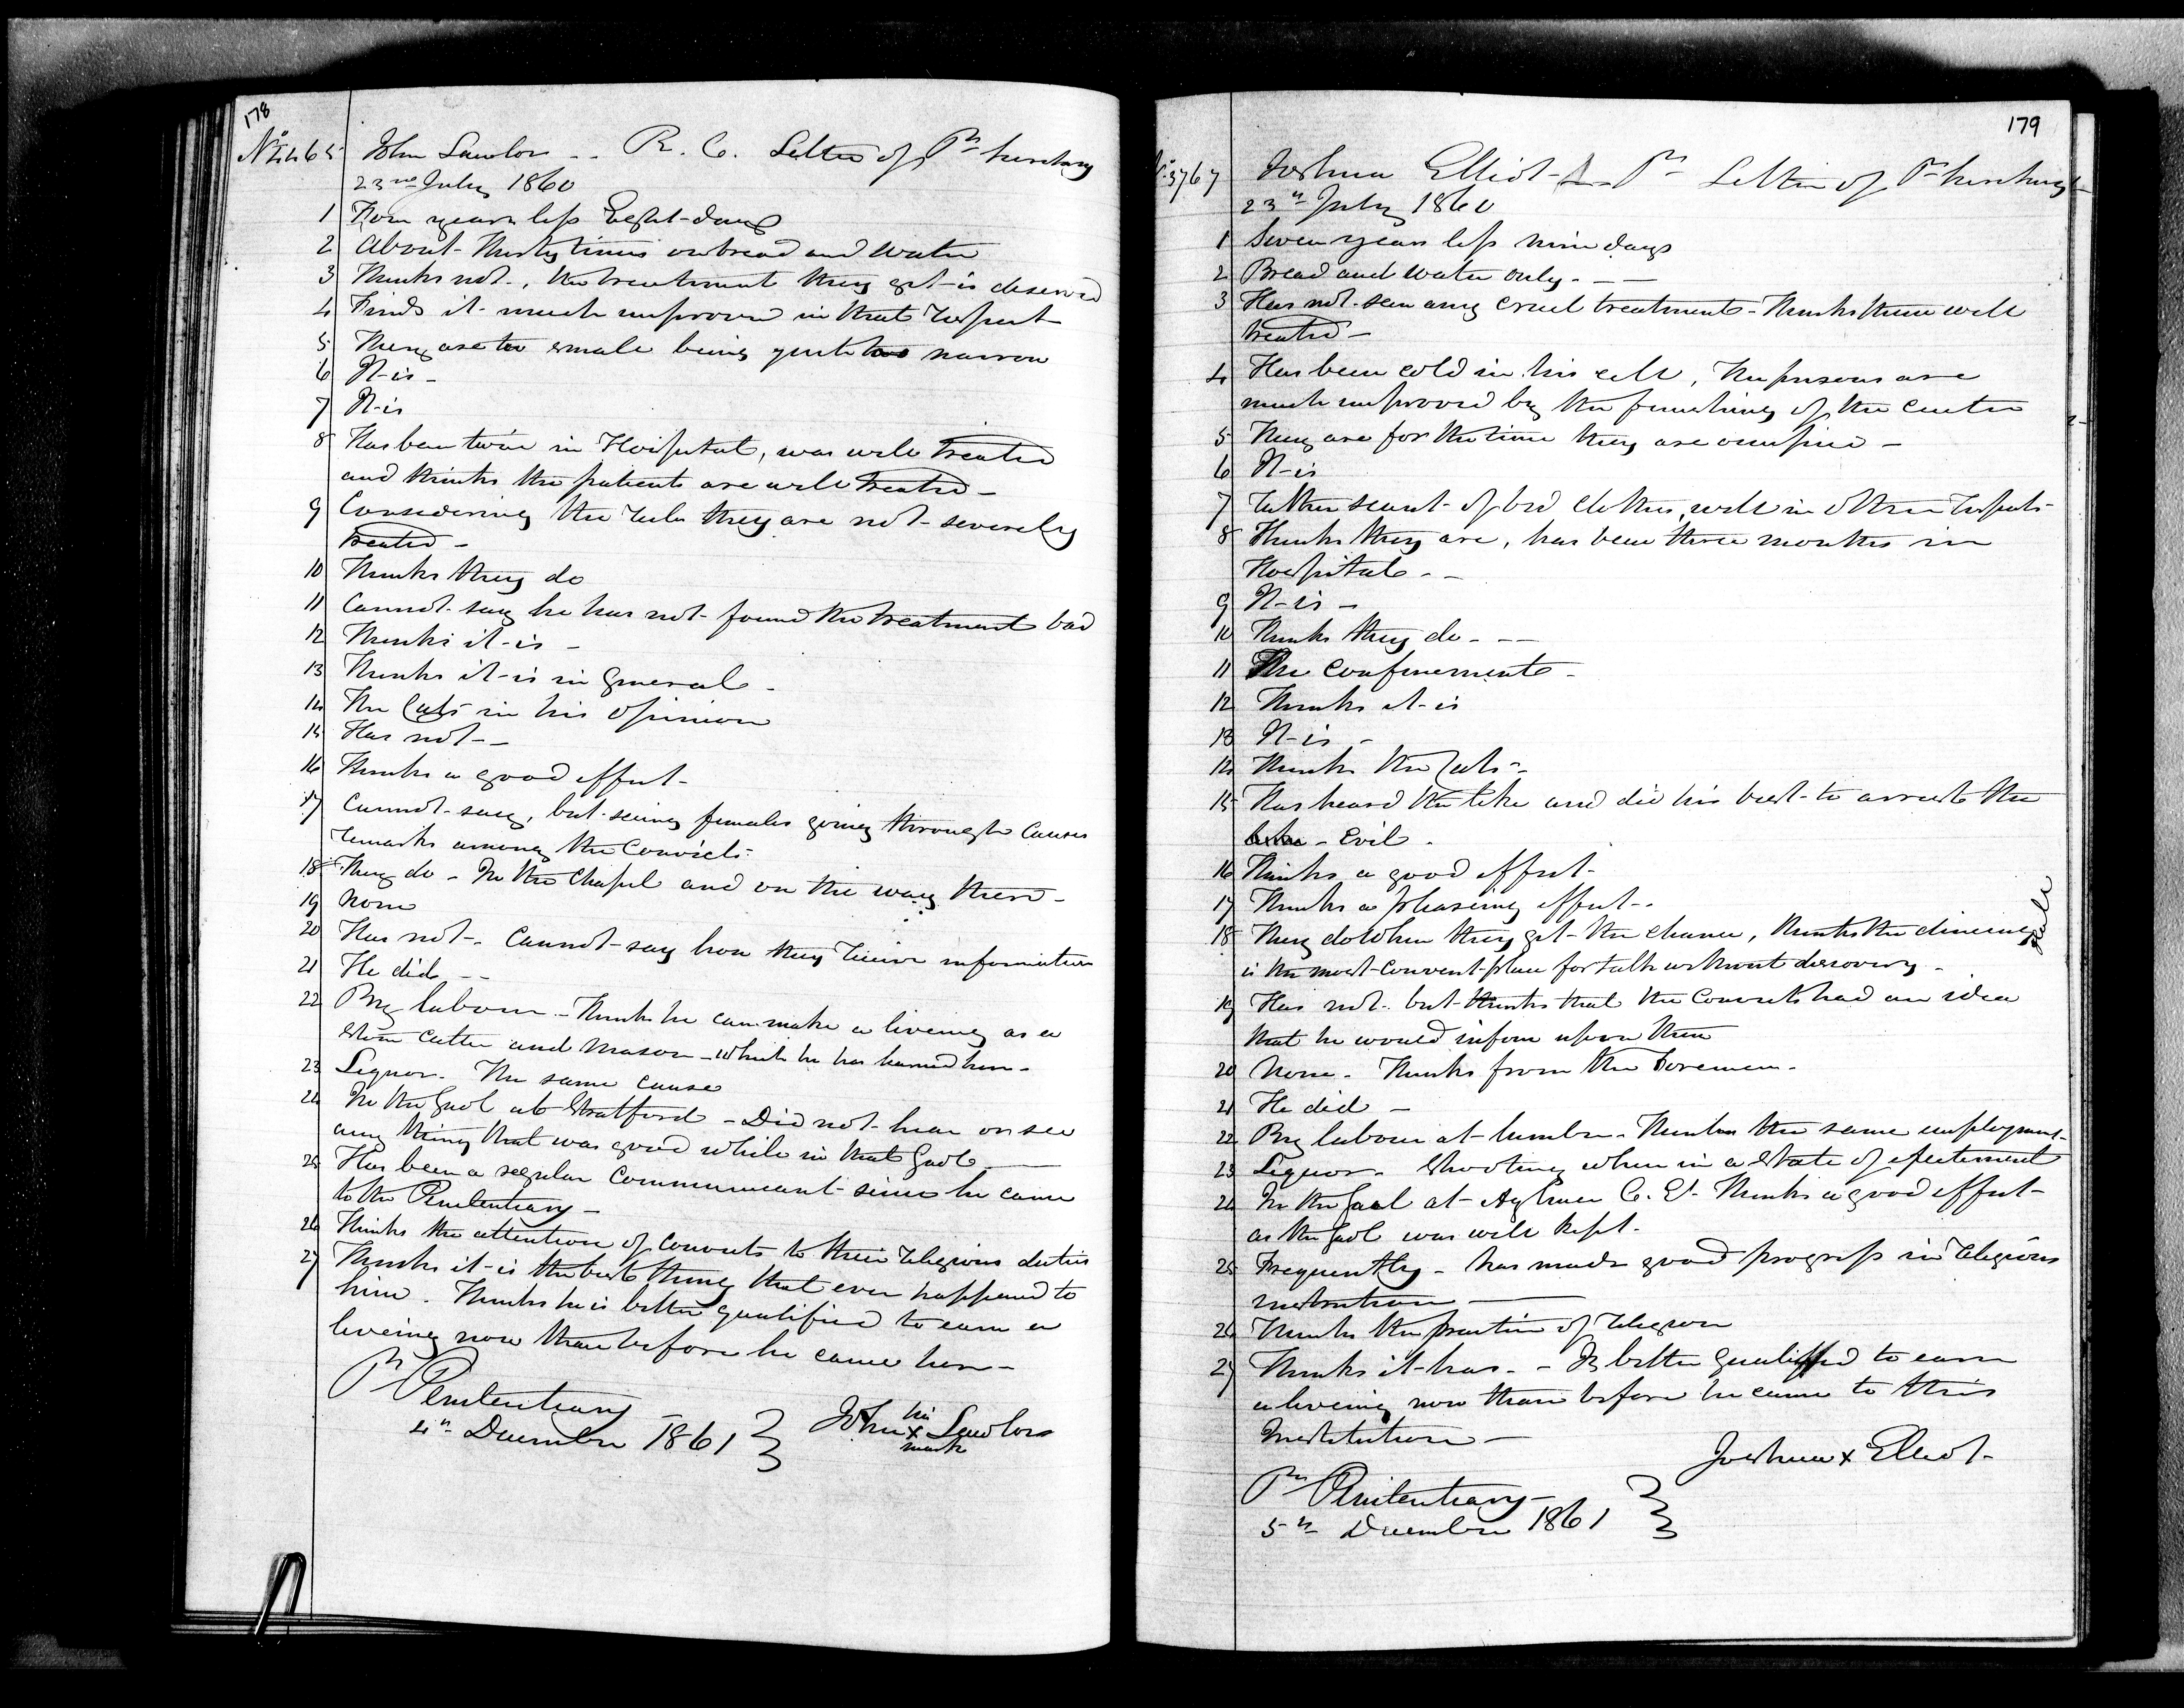 178
No 4465 John Lawlor -- R. C. Letter of Pl Secretary
23rd July 1860
1 Four years less Eight days
2 About Thirty times on bread and water
3 Thinks not, the treatment they get is deserved
4 Finds it much improved in that respect
5 They are too small being quite too narrow
6 It is -
7 It is
8 Has been twice in Hospital, was well treated
and thinks the patients are well treated -
9 Considering the rules they are not severely
treated -
10 Thinks they do
11 Cannot say he has not found the treatment bad
12 Thinks it is -
13 Thinks it is in general -
14 The Cats in his opinion
15 Has not - -
16 Thinks a good effect -
17 Cannot say, but seeing females going through causes
remarks among the Convicts -
18 They do - In the Chapel and on the way there -
19 None
20 Has not - Cannot say how they receive information
21 He did - -
22 By labour - Thinks he can make a liveing as a
Stone cutter and Mason - which he has learned here -
23 Liquor. The same cause
24 In the Gaol at Stratford - Did not hear or see
any thing that was good while in that Gaol -
25 Has been a regular communicant since he came
to the Penitentiary -
26 Thinks the attention of convicts to their religious duties
27 Thinks it is the best thing that ever happened to
him. Thinks he is better qualified to earn a
liveing now than before he came here -
Pl Penitentiary
4th December 1861 } John his x mark Lawlor
179
No 3767 Joshua Elliot - Pt Letter of Pl Secretary
23rd July 1860
1 Seven years less nine days
2 Bread and water only - -
3 Has not seen any cruel treatment - Thinks them well
treated -
4 Has been cold in his cell, The prisons are
much improved by the finishing of the centre
5 They are for the time they are confined -
6 It is
7 Rather scant of bed clothes, well in other respects
8 Thinks they are, has been three months in
Hospital - -
9 It is -
10 Thinks they do - -
11 The confinement -
12 Thinks it is
13 It is -
14 Thinks the Cats -
15 Has heard the like and did his best to arrest the
Evil -
16 Thinks a good effect -
17 Thinks a pleasing effect -
18 They do when they get the chance, thinks the dineing Hall
is the most convent place for talk without discovery -
19 Has not. but thinks that the Convicts had an idea
that he would inform upon them
20 None - Thinks from the Foremen -
21 He did -
22 By labour at lumber - Thinks the same employment
23 Liquor - Shooting when in a state of excitement
24 In the Gaol at Aylmer C. E. Thinks a good effect
as the Gaol was well kept -
25 Frequently - has made good progress in religious
instruction -
26 Thinks the practice of religion
27 Thinks it has - - Is better qualified to earn
a liveing now than before he came to this
Institution -
Joshua x Elliot
Pl Penitentiary -
5th December 1861 }